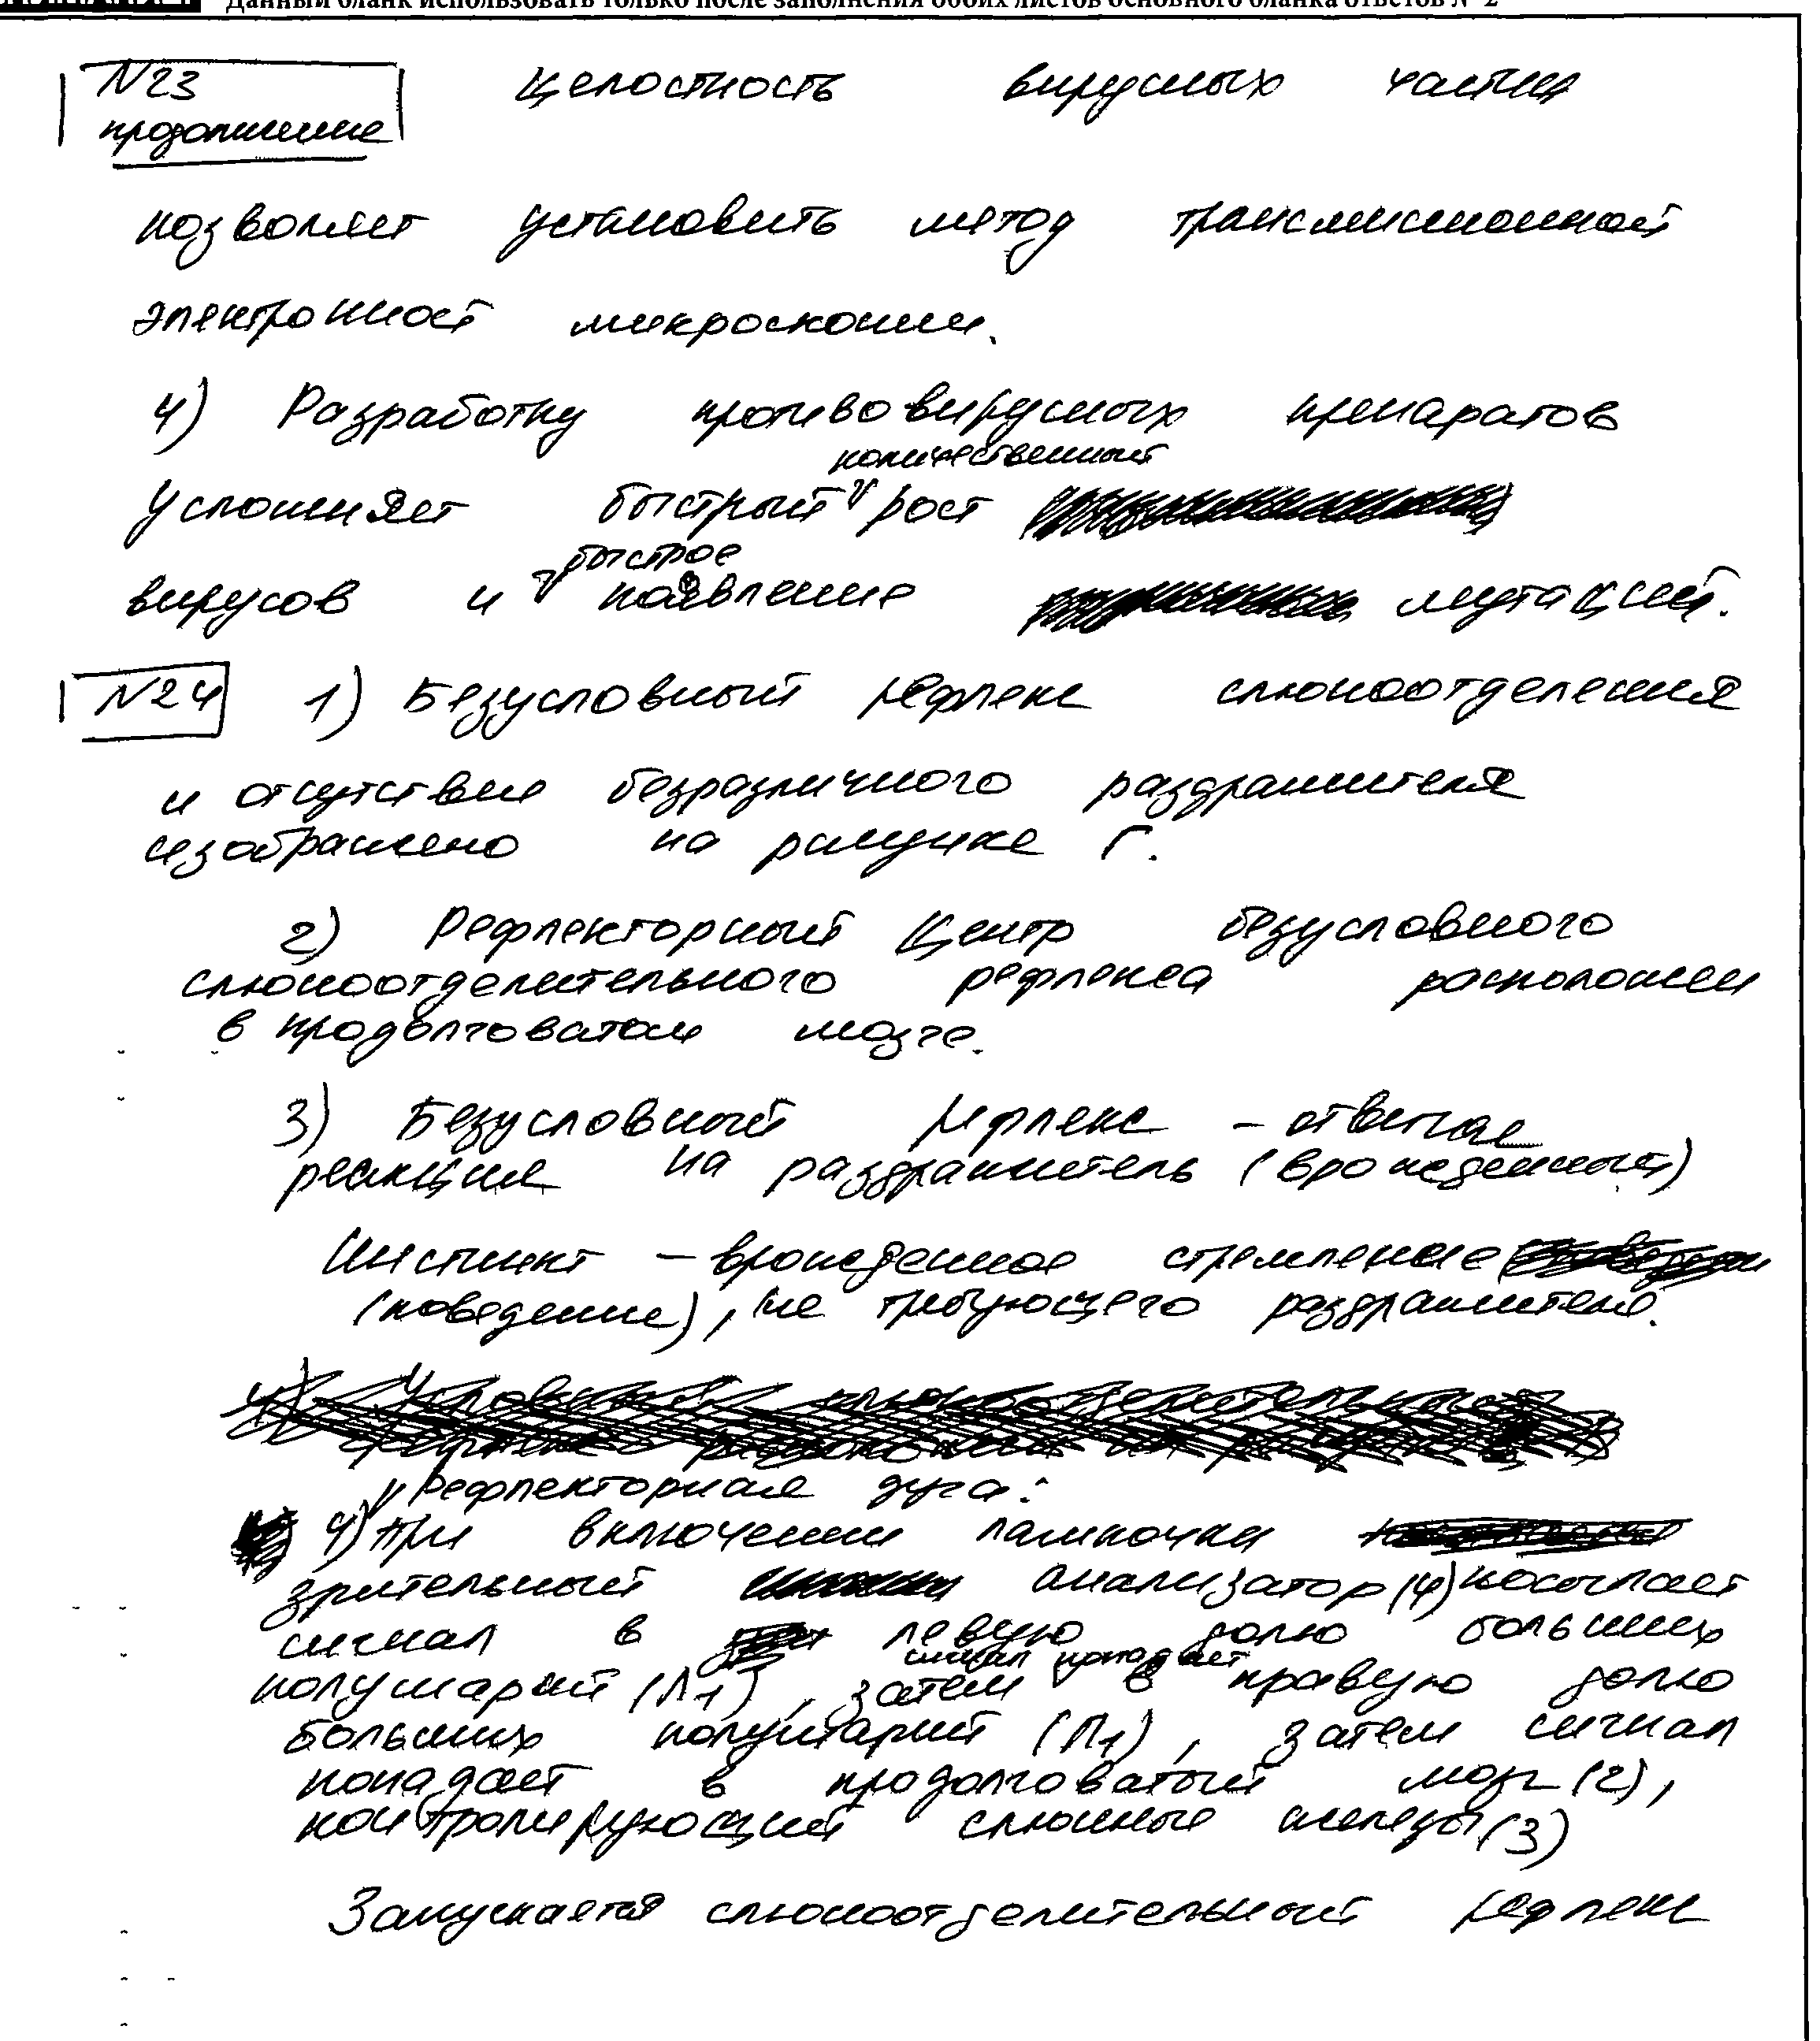 Данный бланк использовать только после заполнения обоих листов основного бланка ответов № 2
№23 Целостность вирусных частиц
продолжение
позволяет установить метод трансмиссионной
электронной микроскопии.
4) Разработку противовирусных препаратов
количественный
усложняет быстрый рост
быстрое
вирусов и появление мутаций.
№24 1) Безусловный рефлекс слюноотделения
и отсутствие безразличного раздражителя
изображено на рисунке Г.
2) Рефлекторный центр безусловного
слюноотделительного рефлекса расположен
в продолговатом мозге.
3) Безусловный рефлекс – ответная
реакция на раздражитель (врожденный)
Инстинкт – врожденное стремление
(поведение), не требующего раздражителя.
Рефлекторная дуга:
4) При включении лампочки
зрительный анализатор (4) посылает
сигнал в левую долю больших
сигнал попадает
полушарий (Л1), затем в правую долю
больших полушарий (П1), затем сигнал
попадает в продолговатый мозг (2),
контролирующий слюнные железы (3)
Запускается слюноотделительный рефлекс